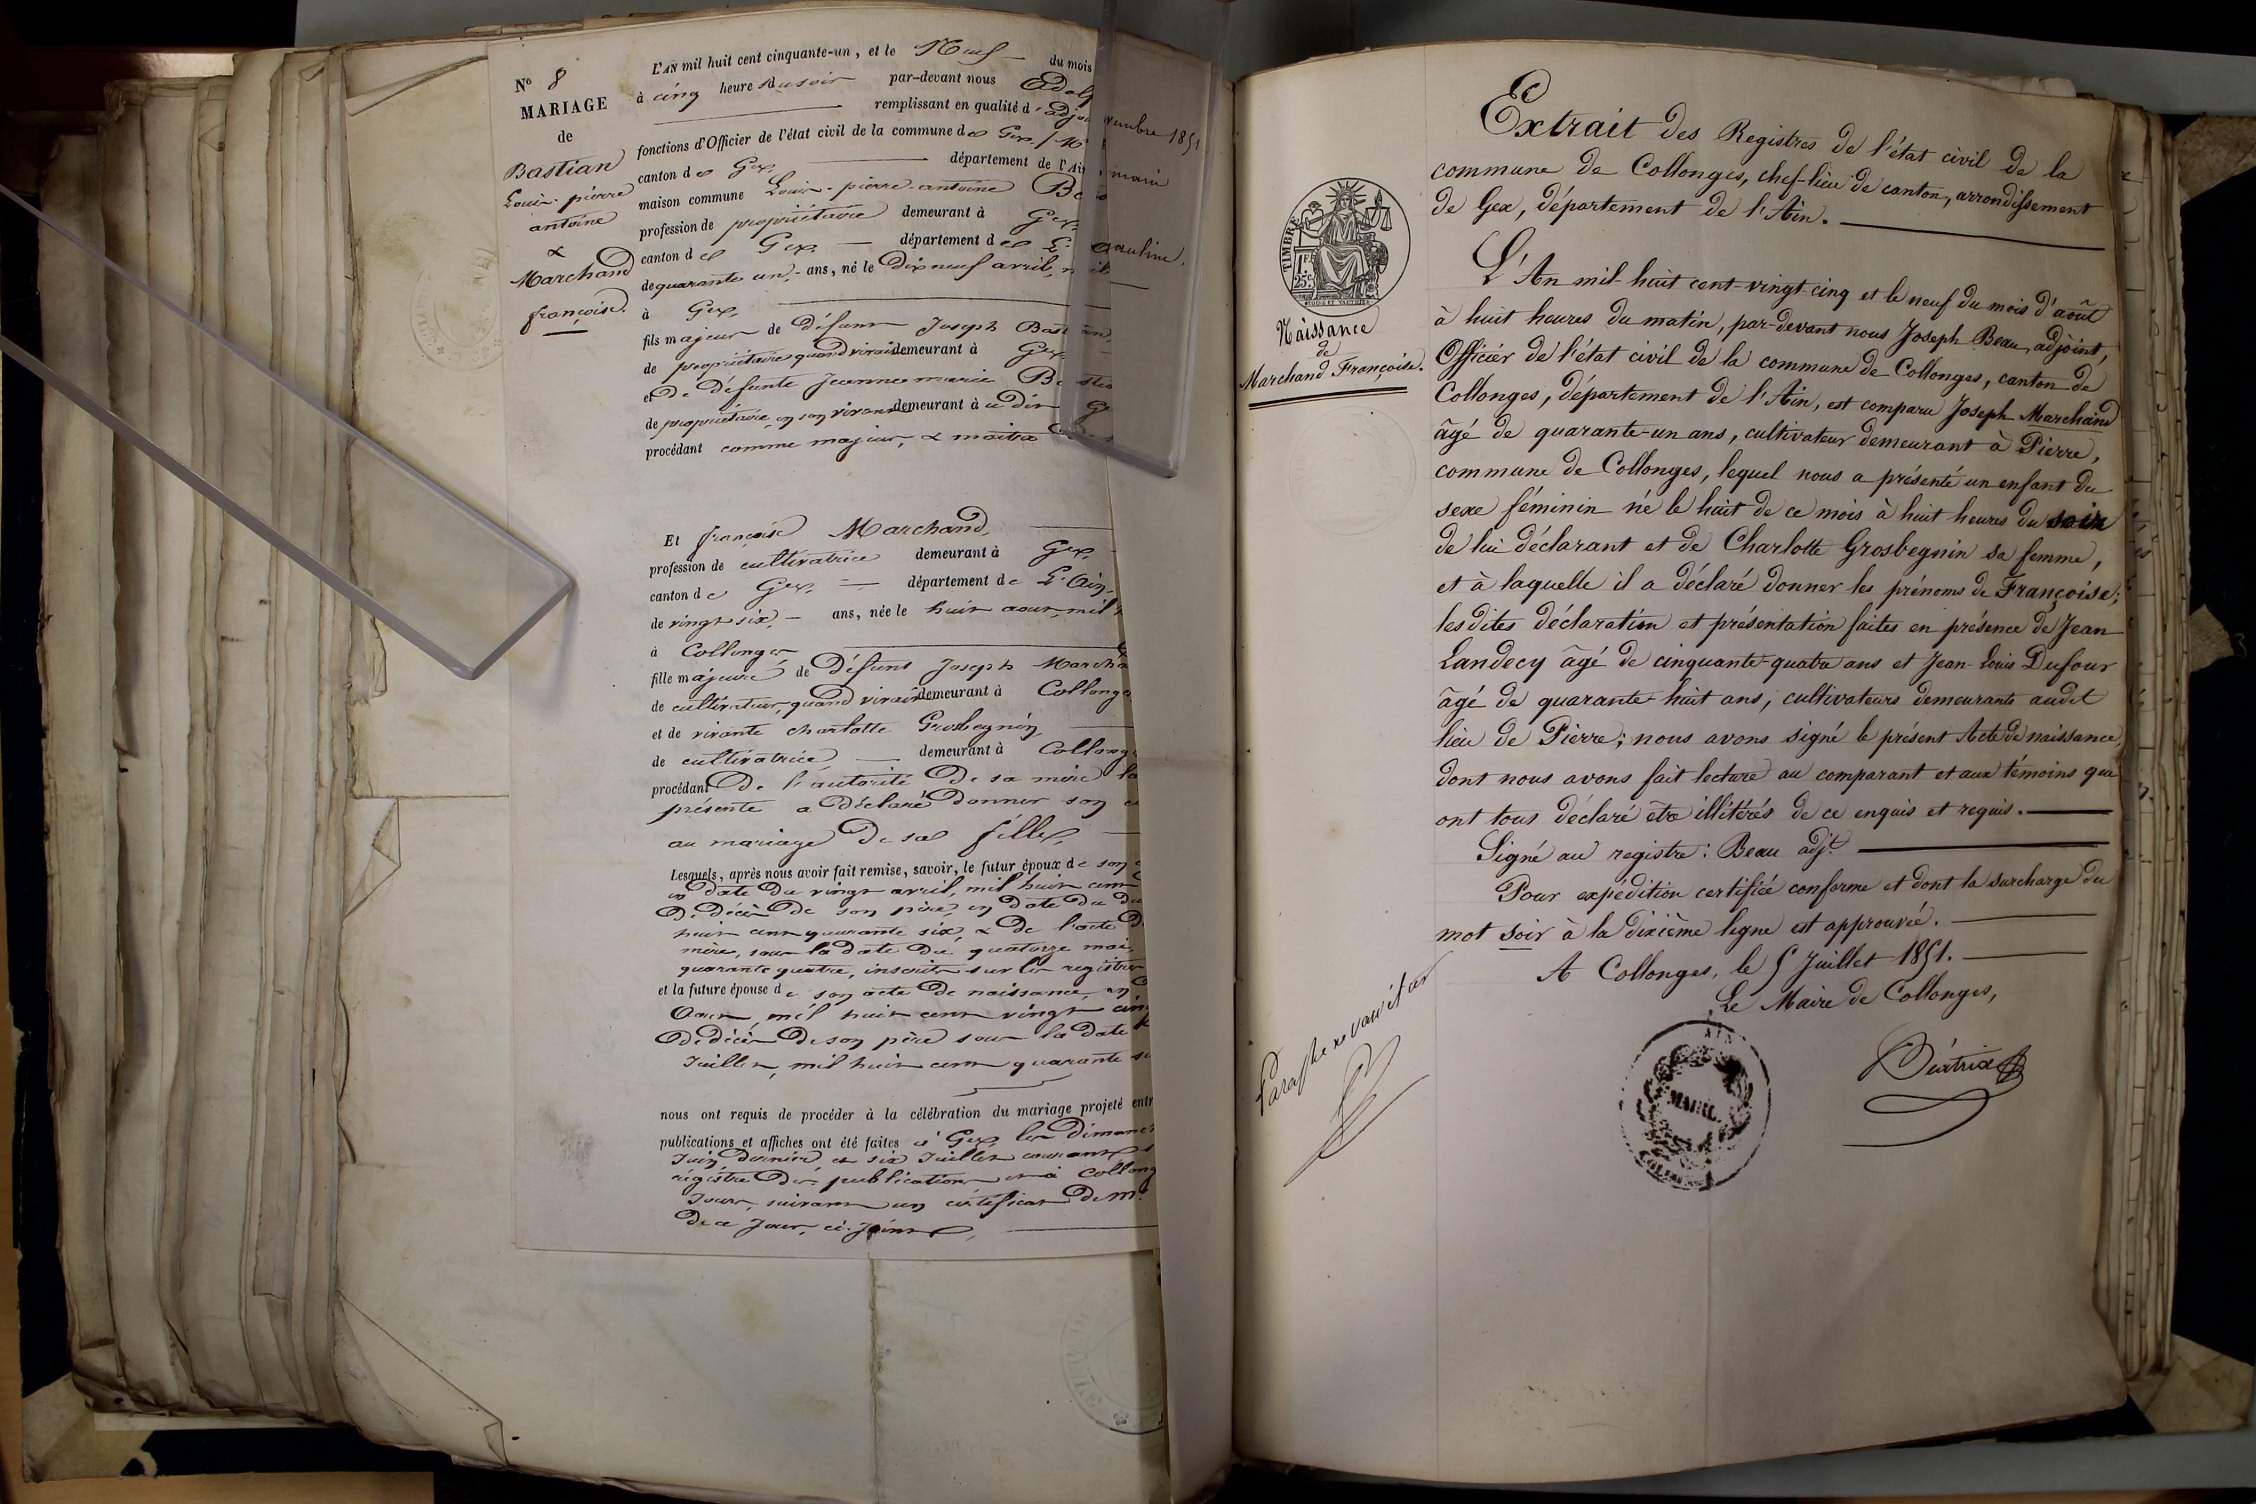 Nº 8
MARIAGE
de
Bastian
Louis-pierre
antoine
&
Marchand
françoise.
L'AN mil huit cent cinquante-un, et le Neuf du mois
à cinq heure du soir par-devant nous Adolp
remplissant en qualité d'adjoi
fonctions d'Officier de l'état civil de la commune de Gex,
canton de Gex, département de l'Ain
maison commune Louis-pierre-antoine Ba
profession de propriétaire demeurant à Gex,
canton de Gex, département de
de quarante un ans, né le Dix neuf avril,
à Gex,
fils majeur de Défunt Joseph Bastian,
de propriétaire quand vivait demeurant à Gex,
et De défunte Jeanne marie
de propriétaire, en son vivant demeurant à
procédant comme majeur, & maitre
vembre 1851
Et françoise Marchand,
profession de cultivatrice demeurant à Gex,
canton de Gex, département de L'Ain,
de vingt six, ans, née le huit aout, mil
à Collonges
fille majeure de Défunt Joseph Marcha
de cultivateur, quand vivait demeurant à Collonge
et de vivante charlotte Grosbegnin,
de cultivatrice demeurant à Collong
procédant De l'autorité De sa mère
présente a Déclaré Donner son
au mariage De sa fille,
Lesquels, après nous avoir fait remise, savoir, le futur époux de son
en Date Du vingt avril, mil huit cent
De décès De son père, en Date Du
huit cent quarante six, & De l'acte
mère, sous la date Du quatorze mai,
quarante quatre, inscrits sur les registres
et la future épouse de son acte De naissance, en
Aout, mil huit cent vingt cinq
De décès De son père sous la Date
Juillet, mil huit cent quarante
nous ont requis de procéder à la célébration du mariage projeté entr
publications et affiches ont été faites à Gex, les Dimanch
Juin dernier et six Juillet courant
régistre Des publications et à Collong
Jours, suivant un certificat De Mr
De ce Jour, ci-Joint,
Extrait des Registres de l'état civil de la
commune de Collonges, chef-lieu de canton, arrondissement
de Gex, département de l'Ain.
TIMBRE
1F.
25c.
Naissance
de
Marchand Françoise.
L'An mil huit cent vingt-cinq et le neuf du mois d'août
à huit heures du matin, par-devant nous Joseph Beau, adjoint,
Officier de l'état civil de la commune de Collonges, canton de
Collonges, département de l'Ain, est comparu Joseph Marchand
âgé de quarante-un ans, cultivateur demeurant à Pierre,
commune de Collonges, lequel nous a présenté un enfant du
sexe féminin né le huit de ce mois à huit heures du soir
de lui déclarant et de Charlotte Grosbegnin sa femme,
et à laquelle il a déclaré donner les prénoms de Françoise;
les dites déclaration et présentation faites en présence de Jean
Landecy âgé de cinquante-quatre ans et Jean-Louis Dufour
âgé de quarante-huit ans, cultivateurs demeurants audit
lieu de Pierre; nous avons signé le présent Acte de naissance,
dont nous avons fait lecture au comparant et aux témoins qui
ont tous déclaré être illitérés de ce enquis et requis.
Signé au registre: Beau adjt.
Pour expédition certifiée conforme et dont la surcharge du
mot soir à la dixième ligne est approuvée.
A Collonges, le 5 Juillet 1851.
Le Maire de Collonges,
Béatrix
Paraphé ne varietur
AIN
MAIRIE